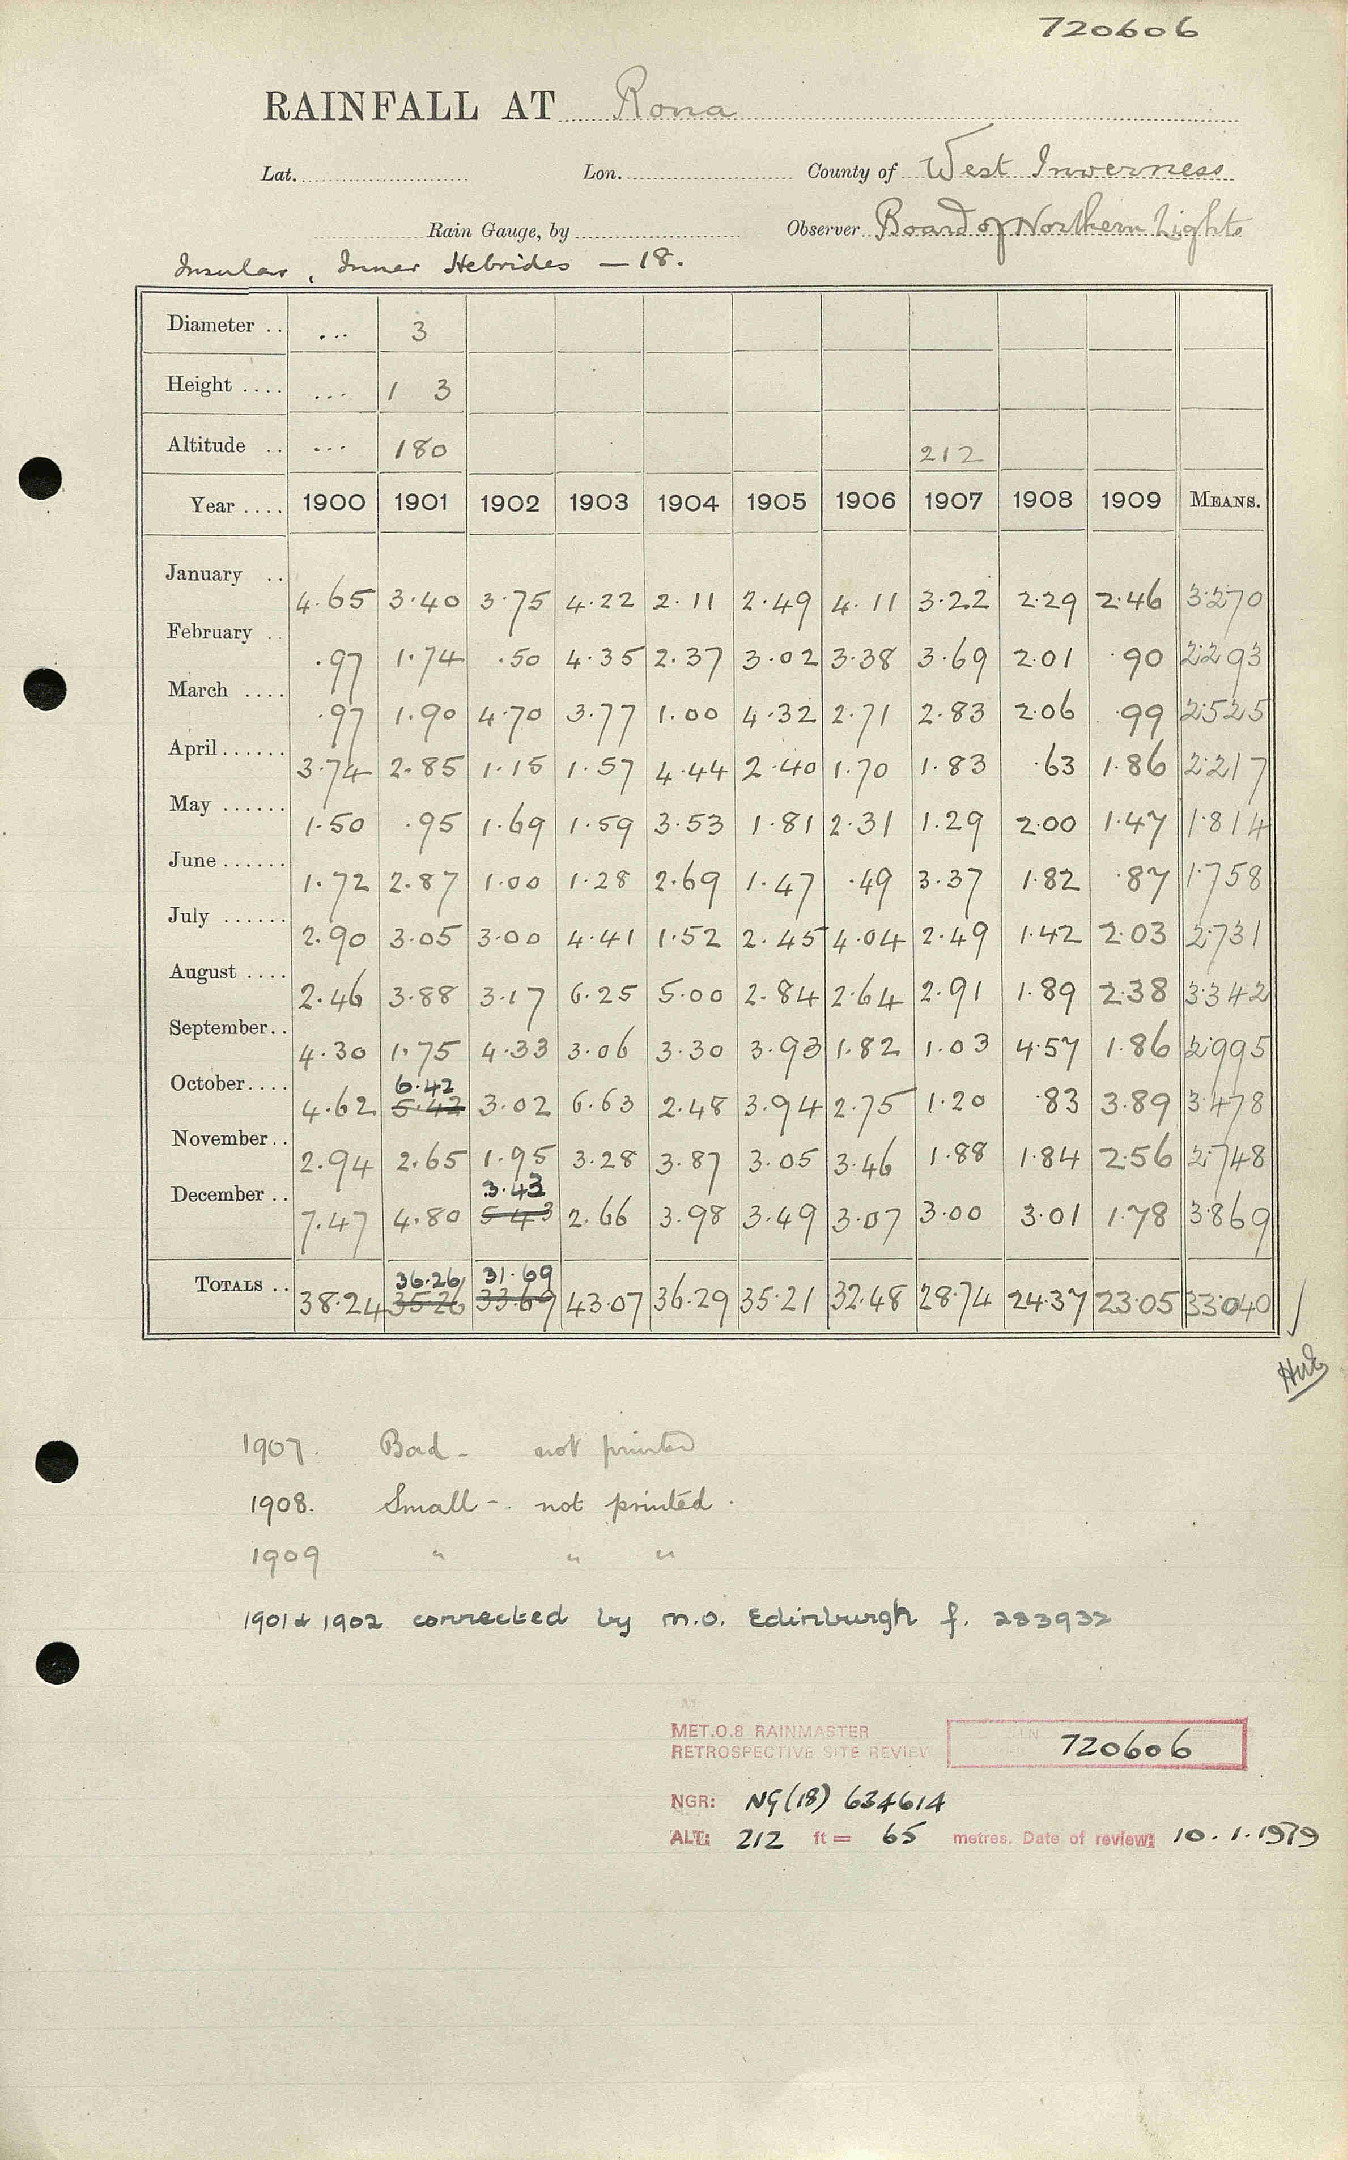 720606
RAINFALL AT Rona
Lat. Lon. County of West Inverness
Rain Gauge, by Observer Board of Northern Lights
Insular, Inner Hebrides — 18.
Diameter .. ... 3
Height .... ... 1 3
Altitude .. ... 180 212
Year .... 1900 1901 1902 1903 1904 1905 1906 1907 1908 1909 MEANS.
January .. 4.65 3.40 3.75 4.22 2.11 2.49 4.11 3.22 2.29 2.46 3.270
February .. .97 1.74 .50 4.35 2.37 3.02 3.38 3.69 2.01 .90 2.293
March .... .97 1.90 4.70 3.77 1.00 4.32 2.71 2.83 2.06 .99 2.525
April ...... 3.74 2.85 1.15 1.57 4.44 2.40 1.70 1.83 .63 1.86 2.217
May ...... 1.50 .95 1.69 1.59 3.53 1.81 2.31 1.29 2.00 1.47 1.814
June ...... 1.72 2.87 1.00 1.28 2.69 1.47 .49 3.37 1.82 .87 1.758
July ...... 2.90 3.05 3.00 4.41 1.52 2.45 4.04 2.49 1.42 2.03 2.731
August .... 2.46 3.88 3.17 6.25 5.00 2.84 2.64 2.91 1.89 2.38 3.342
September.. 4.30 1.75 4.33 3.06 3.30 3.93 1.82 1.03 4.57 1.86 2.995
6.42
October.... 4.62 5.42 3.02 6.63 2.48 3.94 2.75 1.20 .83 3.89 3.478
November.. 2.94 2.65 1.95 3.28 3.87 3.05 3.46 1.88 1.84 2.56 2.748
3.43
December .. 7.47 4.80 5.43 2.66 3.98 3.49 3.07 3.00 3.01 1.78 3.869
36.26 31.69
TOTALS .. 38.24 35.26 33.69 43.07 36.29 35.21 32.48 28.74 24.37 23.05 33.040
1907. Bad - not printed
1908. Small - not printed.
1909 " " "
1901 & 1902 corrected by M.O. Edinburgh f. 283932
MET.O.8 RAINMASTER
RETROSPECTIVE SITE REVIEW 720606
NGR: NG (18) 634614
ALT: 212 ft = 65 metres. Date of review: 10.1.1979